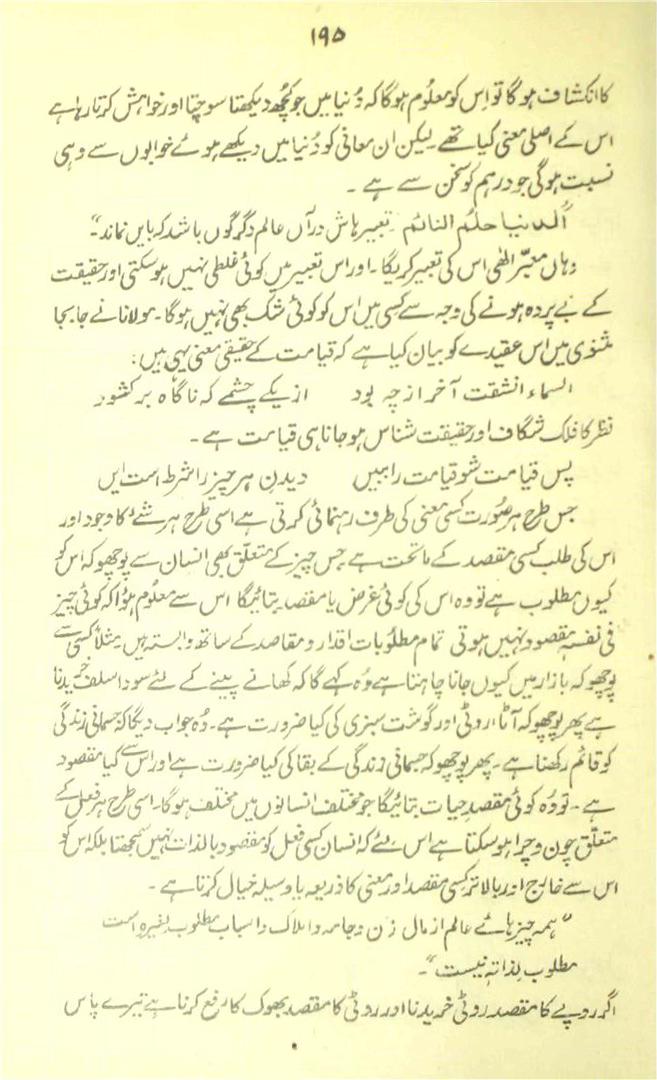 ۱۹۵
کا انکشاف ہوگا تو اس کو معلوم ہوگا کہ دُنیا میں جو کچھ دیکھتا سوچتا اور خواہش کرتا رہا ہے
اس کے اصلی معنی کیا تھے۔ لیکن ان معافی کو دُنیا میں دیکھے ہوئے خوابوں سے وہی
نسبت ہوگی جو درہم کو سخن سے ہے۔
"الدنیا حلم النائم۔ تعبیر ہاش در آں عالم دگرگوں باشد کہ بایں نماند"۔
وہاں معبّر الٰہی اس کی تعبیر کریگا۔ اور اس تعبیر میں کوئی غلطی نہیں ہوسکتی اور حقیقت
کے بے پردہ ہونے کی وجہ سے کسی میں اس کو کوئی شک بھی نہیں ہوگا۔ مولانا نے جابجا
مثنوی میں اس عقیدے کو بیان کیا ہے کہ قیامت کے حقیقی معنی یہی ہیں:
السماء انشقت آخر از چہ بود از یکے چشمے کہ ناگاہ بر کشود
نظر کا فلک شگاف اور حقیقت شناس ہو جانا ہی قیامت ہے۔
پس قیامت شو قیامت را ببیں دیدنِ ہر چیز را شرط است ایں
جس طرح ہر صُورت کسی معنی کی طرف رہنمائی کرتی ہے اسی طرح ہر شئے کا وجود اور
اس کی طلب کسی مقصد کے ماتحت ہے جس چیز کے متعلق بھی انسان سے پوچھو کہ اس کو
کیوں مطلوب ہے تو وہ اس کی کوئی غرض یا مقصد بتائیگا اس سے معلوم ہوا کہ کوئی چیز
فی نفسہٖ مقصود نہیں ہوتی تمام مطلوبات اقدار و مقاصد کے ساتھ وابستہ ہیں مثلاً کسی سے
پوچھو کہ بازار میں کیوں جانا چاہتا ہے وُہ کہے گا کہ کھانے پینے کے لئے سودا سلف خریدنا
ہے پھر پوچھو کہ آٹا، روٹی اور گوشت سبزی کی کیا ضرورت ہے۔ وُہ جواب دیگا کہ جسمانی زندگی
کو قائم رکھنا ہے۔ پھر پوچھو کہ جسمانی زندگی کے بقا کی کیا ضرورت ہے اور اس سے کیا مقصود
ہے۔ تو وُہ کوئی مقصدِ حیات بتائیگا جو مختلف انسانوں میں مختلف ہوگا۔ اسی طرح ہر فعل کے
متعلق چون و چرا ہوسکتا ہے اس لئے کہ انسان کسی فعل کو مقصود بالذات نہیں سمجھتا بلکہ اس کو
اس سے خارج اور بالاتر کسی مقصد اور معنی کا ذریعہ یا وسیلہ خیال کرتا ہے۔
"ہمہ چیز ہائے عالم از مال زن و جامہ و املاک و اسباب مطلوب لغیرہٖ است
مطلوب لذاتہٖ نیست"۔
اگر روپے کا مقصد روٹی خریدنا اور روٹی کا مقصد بھوک کا رفع کرنا ہے تیرے پاس